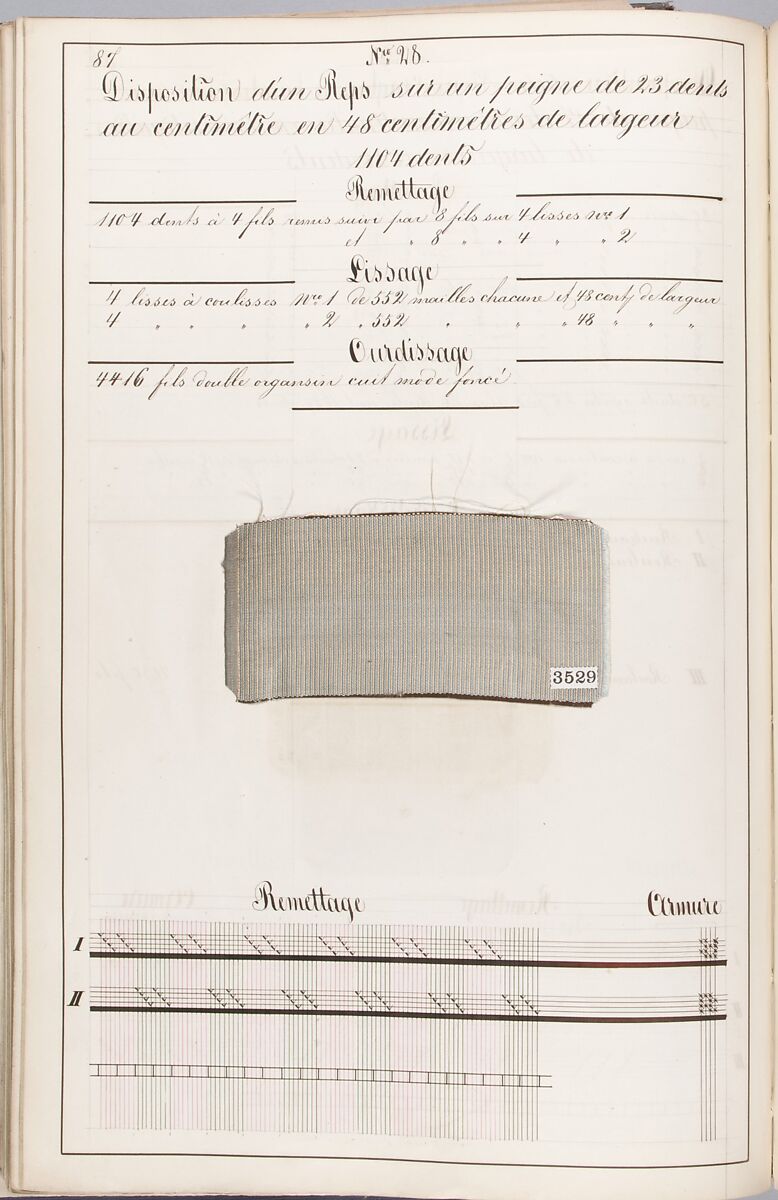 87
Nro 28.
Disposition d'un Reps sur un peigne de 23 dents
au centimètre en 48 centimètres de largeur
1104 dents
Remettage
1104 dents à 4 fils remis suivi par 8 fils sur 4 lisses Nro 1
et " 8 " " 4 " " 2
Lissage
4 lisses à coulisses Nro 1 de 552 mailles chacune et 48 cent. de largeur
4 " " " " 2 " 552 " " " 48 " " "
Ourdissage
4416 fils double organsin cuit mode foncé.
3529
Remettage Armure
I
II